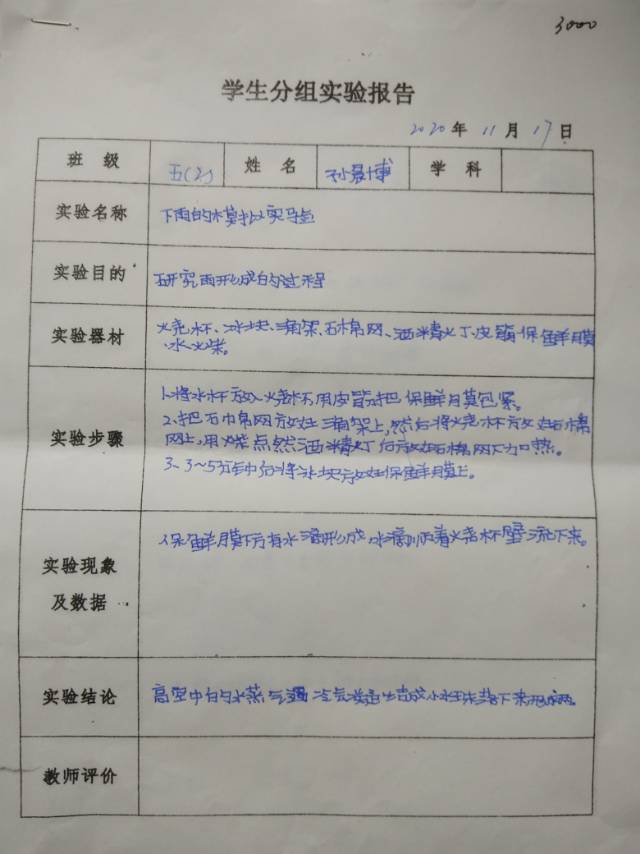 3000
学生分组实验报告
2020年11月17日
班级 五(2) 姓名 孙景博 学科
实验名称 下雨的模拟实验
实验目的 研究雨形成的过程
实验器材 烧杯、冰块、三角架、石棉网、酒精灯、皮筋、保鲜膜
水、火柴。
实验步骤
1、将水放入烧杯用皮筋把保鲜膜包紧。
2、把石棉网放在三角架上,然后将烧杯放在石棉
网上,用火柴点燃酒精灯后放在石棉网下加热。
3、3~5分钟后将冰块放在保鲜膜上。
实验现象
及数据
保鲜膜下方有水滴形成 水滴顺着烧杯壁流下来。
实验结论 高空中的水蒸气遇冷气凝结成小水珠落下来形成雨。
教师评价